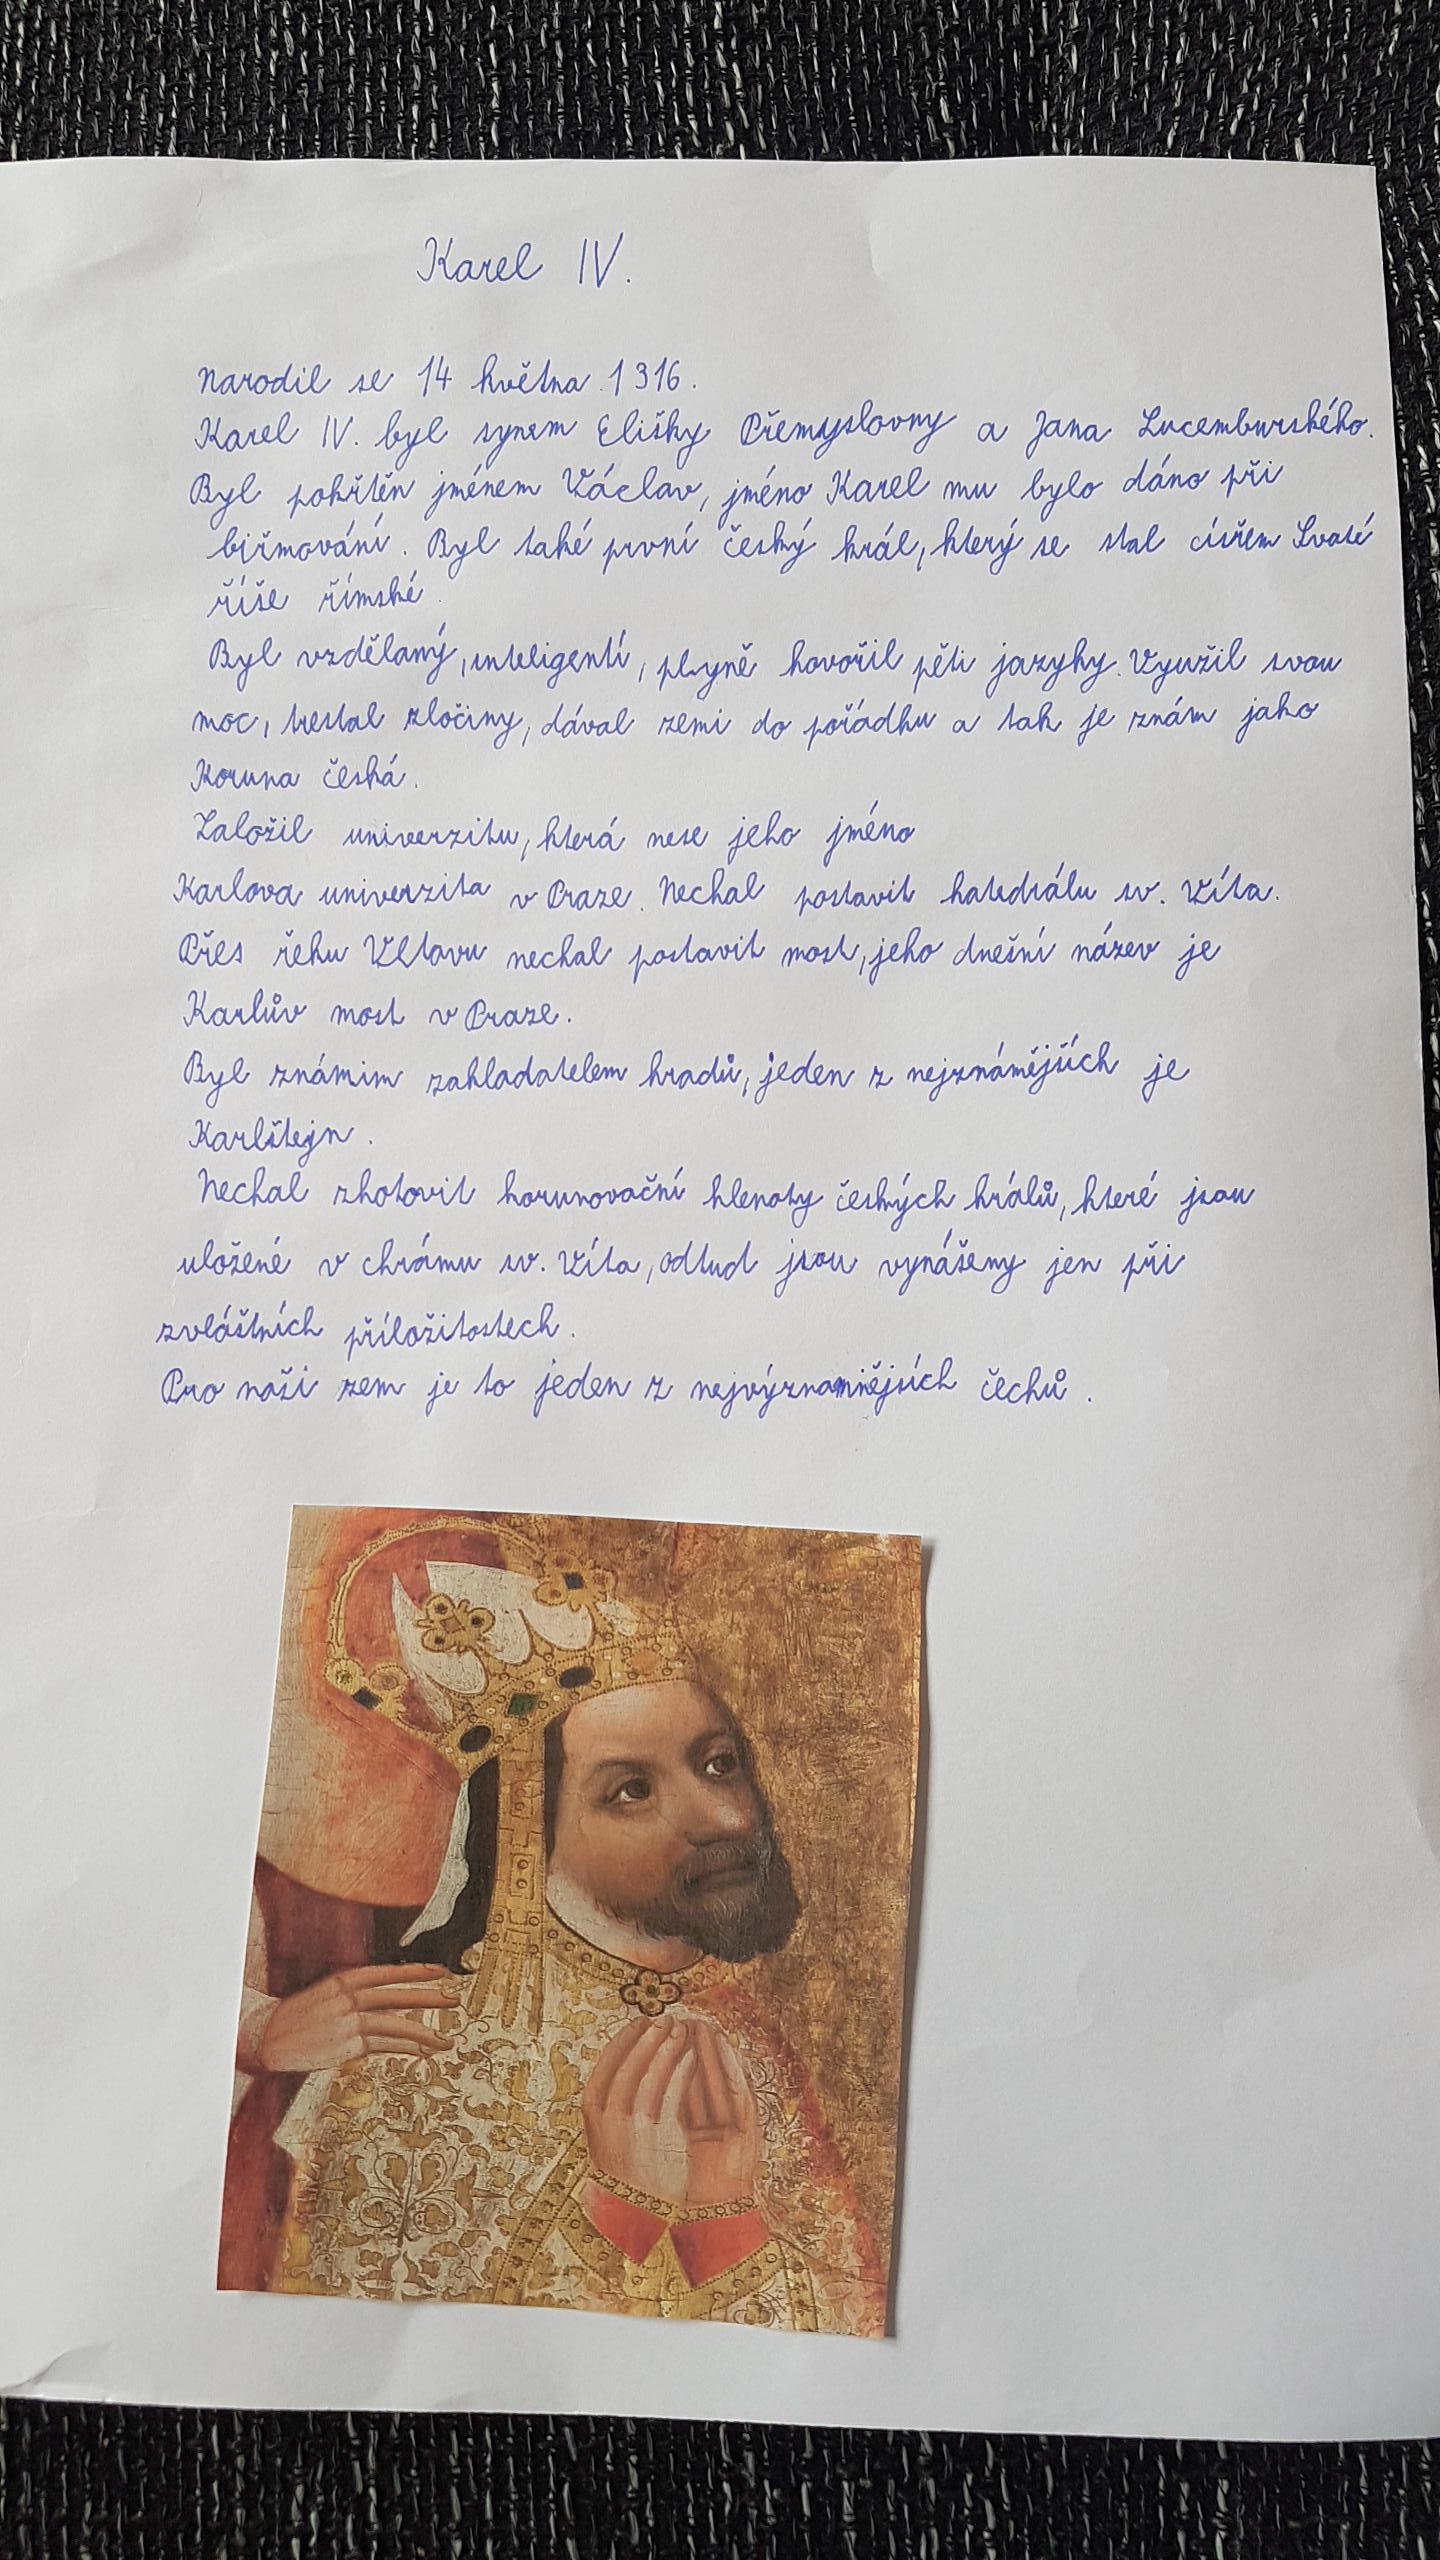 Karel IV.
Narodil se 14 května 1316.
Karel IV. byl synem Elišky Přemyslovny a Jana Lucemburského.
Byl pokřtěn jménem Václav, jméno Karel mu bylo dáno při
biřmování. Byl také první český král, který se stal císřem Svaté
říše římské.
Byl vzdělaný, inteligentí, plyně hovořil pěti jazyky. Využil svou
moc, trestal zločiny, dával zemi do pořádku a tak je znám jako
Koruna česká.
Založil univerzitu, která nese jeho jméno
Karlova univerzita v Praze. Nechal postavit katedrálu sv. Víta.
Přes řeku Vltavu nechal postavit most, jeho dnešní název je
Karlův most v Praze.
Byl známim zakladatelem hradů, jeden z nejznámějších je
Karlštejn.
Nechal zhotovit korunovační klenoty českých králů, které jsou
uložené v chrámu sv. Víta, odtud jsou vynášeny jen při
zvláštních příložitostech.
Pro naši zem je to jeden z nejvýznamnějsích čechů.